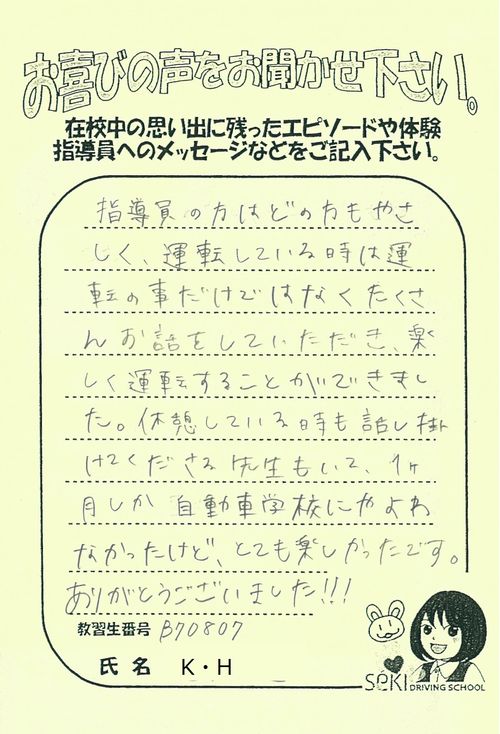 お喜びの声をお聞かせ下さい。
在校中の思い出に残ったエピソードや体験
指導員へのメッセージなどをご記入下さい。
指導員の方はどの方もやさ
しく、運転している時は運
転の事だけではなくたくさ
んお話をしていただき、楽
しく運転することができまし
た。休憩している時も話し掛
けてくださる先生もいて、1ヶ
月しか自動車学校にかよわ
なかったけど、とても楽しかったです。
ありがとうございました!!!
教習生番号 B70807
氏名 K・H
SEKI DRIVING SCHOOL